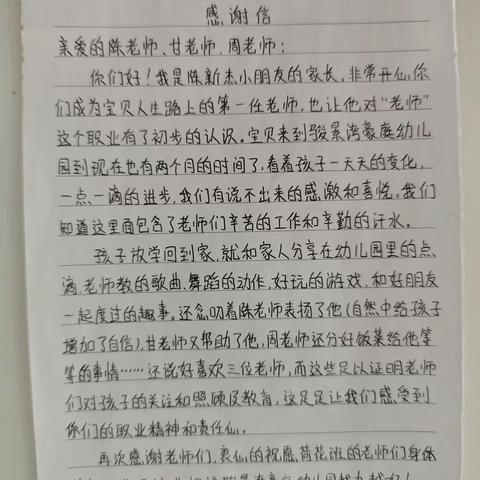 感谢信
亲爱的陈老师、甘老师、周老师：
你们好！我是陈新杰小朋友的家长，非常开心，你
们成为宝贝人生路上的第一任老师，也让他对“老师”
这个职业有了初步的认识。宝贝来到骏景湾豪庭幼儿
园到现在也有两个月的时间了，看着孩子一天天的变化，
一点一滴的进步，我们有说不出来的感激和喜悦。我们
知道这里面包含了老师们辛苦的工作和辛勤的汗水。
孩子放学回到家，就和家人分享在幼儿园里的点
滴，老师教的歌曲、舞蹈的动作，好玩的游戏，和好朋友
一起度过的趣事。还念叨着陈老师表扬了他（自然中给孩子
增加了自信），甘老师又帮助了他，周老师还分好饭菜给他等
等的事情……还说好喜欢三位老师，而这些足以证明老师
们对孩子的关注和照顾及教育，这足足让我们感受到
你们的职业精神和责任心。
再次感谢老师们，衷心的祝愿荷花班的老师们身体